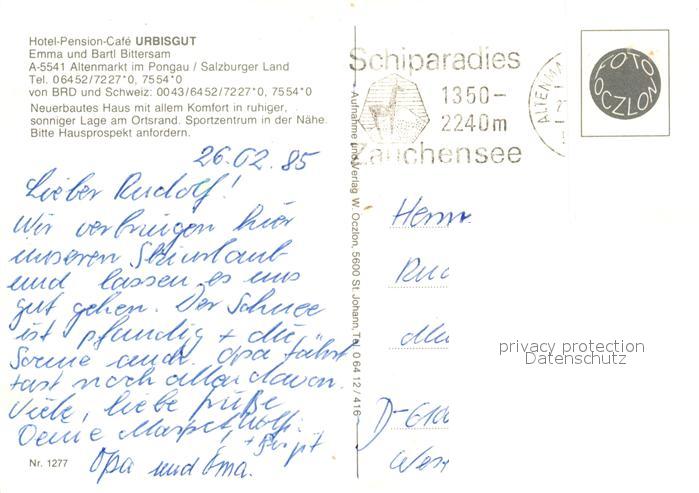 Hotel-Pension-Café URBISGUT
Emma und Bartl Bittersam
A-5541 Altenmarkt im Pongau / Salzburger Land
Tel. 06452/7227*0, 7554*0
von BRD und Schweiz: 0043/6452/7227*0, 7554*0
Neuerbautes Haus mit allem Komfort in ruhiger,
sonniger Lage am Ortsrand. Sportzentrum in der Nähe.
Bitte Hausprospekt anfordern.
26.02.85
Lieber Rudolf!
Wir verbringen hier
unseren Skiurlaub
und lassen es uns
gut gehen. Der Schnee
ist pfundig + die
Sonne auch. Opa fährt
fast noch allen davon.
Viele, liebe Grüße
Deine Margret, Wolfi
+ Birgit
Opa und Oma.
Nr. 1277
Aufnahme und Verlag W. Oczlon, 5600 St. Johann, Tel. 06412/416
Schiparadies
1350-
2240m
Zauchensee
ALTENMA
FOTO
OCZLON
Herrn
Rud
D-
West
privacy protection
Datenschutz